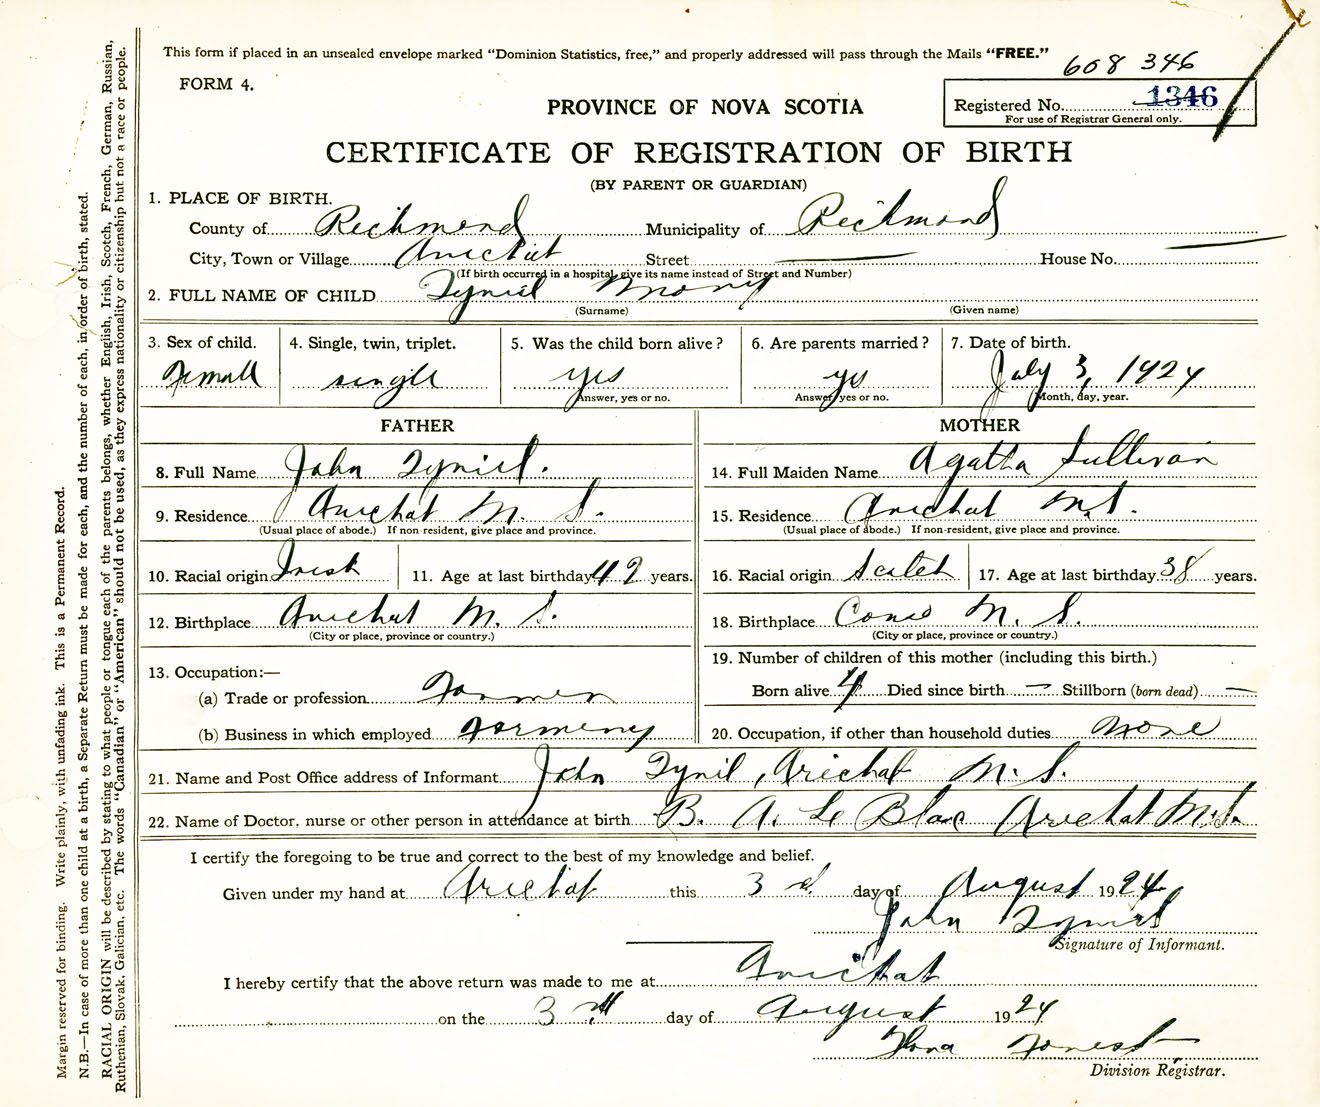 This form if placed in an unsealed envelope marked "Dominion Statistics, free," and properly addressed will pass through the Mails "FREE."
608 346
FORM 4.
PROVINCE OF NOVA SCOTIA
Registered No. 1346
For use of Registrar General only.
CERTIFICATE OF REGISTRATION OF BIRTH
(BY PARENT OR GUARDIAN)
1. PLACE OF BIRTH.
County of Richmond Municipality of Richmond
City, Town or Village Arichat Street — House No. —
(If birth occurred in a hospital, give its name instead of Street and Number)
2. FULL NAME OF CHILD
(Surname) (Given name)
3. Sex of child. 4. Single, twin, triplet. 5. Was the child born alive? 6. Are parents married? 7. Date of birth.
Female single yes yes July 3, 1924
Answer, yes or no. Answer, yes or no. Month, day, year.
FATHER MOTHER
8. Full Name John 14. Full Maiden Name Agatha Sullivan
9. Residence Arichat N. S. 15. Residence Arichat N.S.
(Usual place of abode.) If non-resident, give place and province. (Usual place of abode.) If non-resident, give place and province.
10. Racial origin Irish 11. Age at last birthday 42 years. 16. Racial origin Scotch 17. Age at last birthday 38 years.
12. Birthplace Arichat N. S. 18. Birthplace Canso N. S.
(City or place, province or country.) (City or place, province or country.)
13. Occupation:— 19. Number of children of this mother (including this birth.)
(a) Trade or profession Farmer Born alive 4 Died since birth — Stillborn (born dead) —
(b) Business in which employed Farmeny 20. Occupation, if other than household duties None
21. Name and Post Office address of Informant John Arichat N. S.
22. Name of Doctor, nurse or other person in attendance at birth B. A. Le Blanc Arichat N.S.
I certify the foregoing to be true and correct to the best of my knowledge and belief.
Given under my hand at Arichat this 3 d day of August 1924
John
Signature of Informant.
I hereby certify that the above return was made to me at Arichat
on the 3 day of August 1924
Forest
Division Registrar.
Margin reserved for binding. Write plainly, with unfading ink. This is a Permanent Record.
N.B.—In case of more than one child at a birth, a Separate Return must be made for each, and the number of each, in order of birth, stated.
RACIAL ORIGIN will be described by stating to what people or tongue each of the parents belongs, whether English, Irish, Scotch, French, German, Russian,
Ruthenian, Slovak, Galician, etc. The words "Canadian" or "American" should not be used, as they express nationality or citizenship but not a race or people.